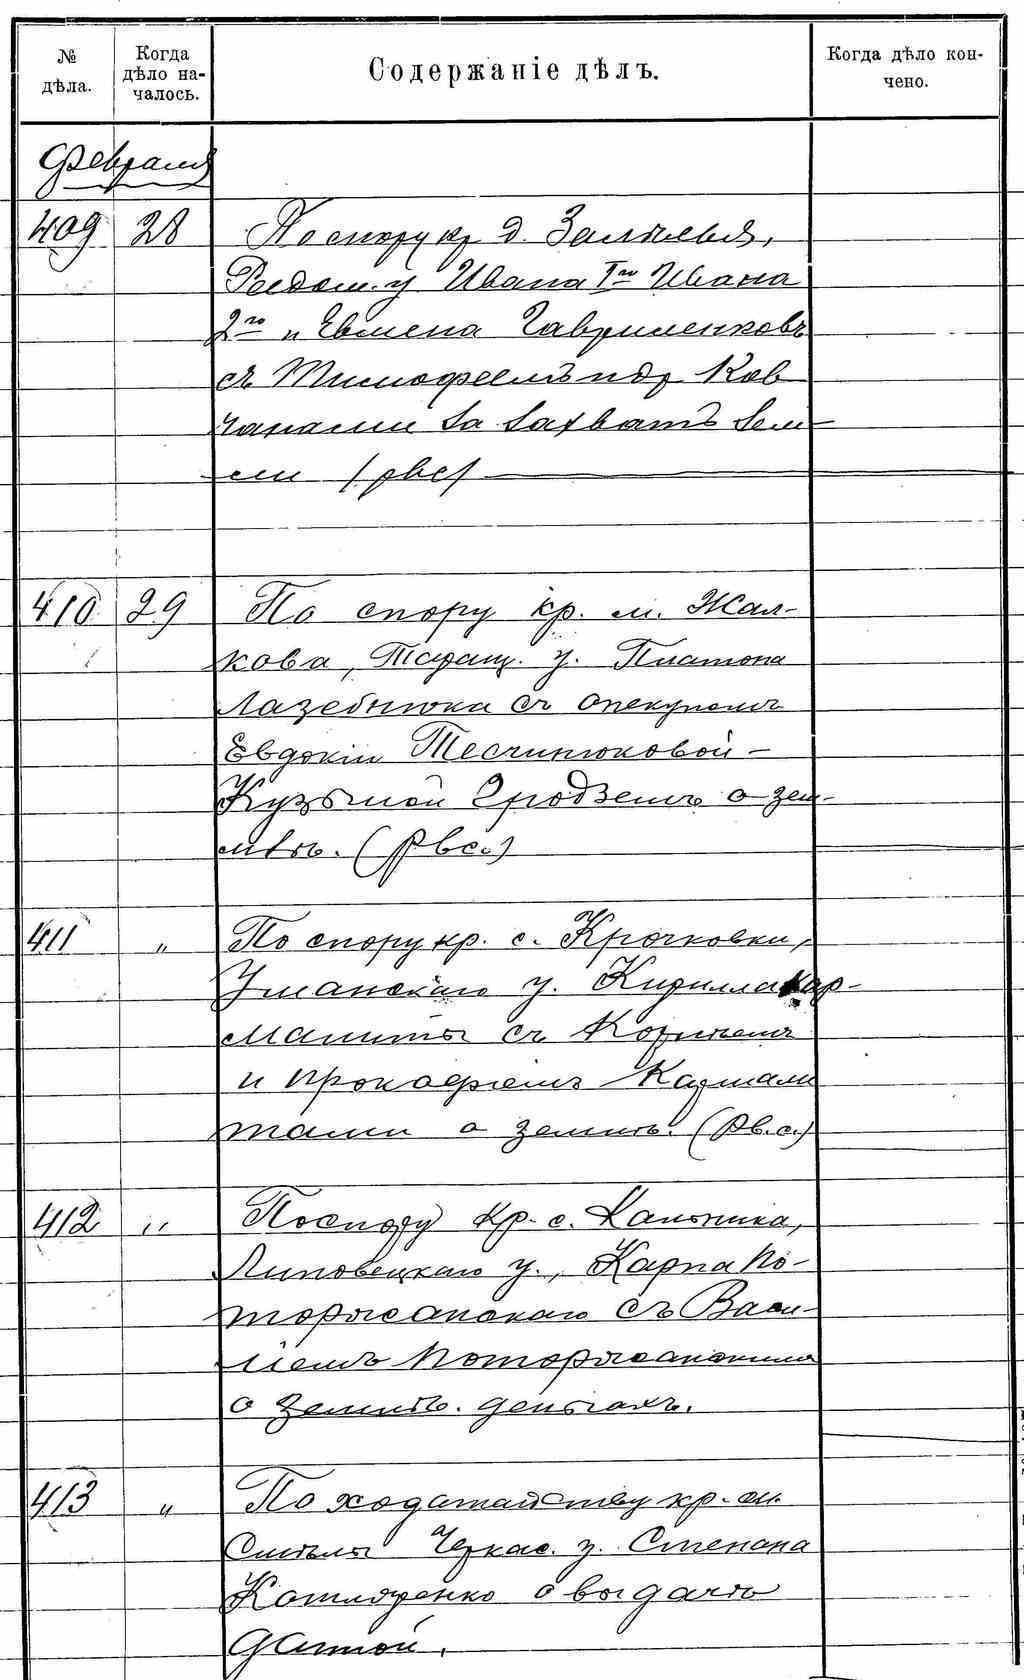 № дѣла.
Когда дѣло на-чалось.
Содержаніе дѣлъ.
Когда дѣло кон-чено.
Февраля
409 28 По спору кр. д.
у Ивана I го Ивана
2 го и Евмена Гавриленковъ
съ Тимофеемъ и др Ков
чанами за захватъ зем-
ли /рвс/
410 29 По спору кр. м. Жаш-
кова, Таращ. у. Платона
Лазебнюка съ опекуномъ
Евдокіи
Кузьмой о зем-
лѣ. (рвс.)
411 " По спору кр. с. Крочковки,
Уманскаго у. Кирилла Кар-
малиты съ Корнѣемъ
и Прокофіемъ Кармали
тами о землѣ. (рв.с.)
412 " По спору кр. с. Кальника,
Липовецкаго у., Карпа По-
торжсанскаго съ Васи-
ліемъ
о землѣ. деньгахъ.
413 " По ходатайству кр. м.
Смѣлы Черкас. у. Степана
Котляренко о выдачѣ
данной.